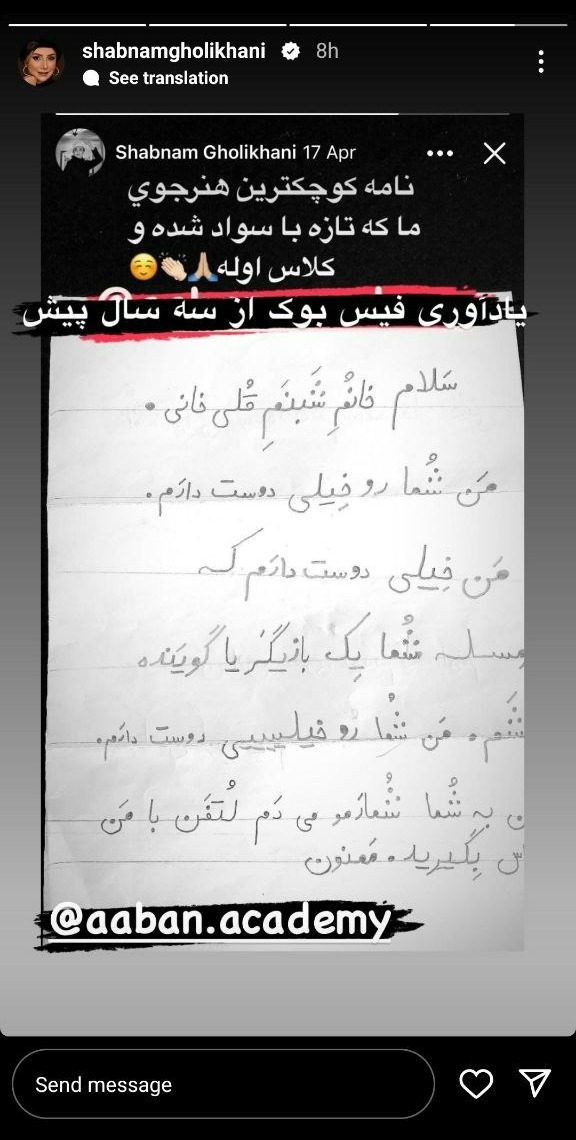 shabnamgholikhani 8h
See translation
Shabnam Gholikhani 17 Apr
نامه کوچکترین هنرجوي
ما که تازه با سواد شده و
کلاس اوله🙏🏻👏🏻☺️
یادآوری فیس بوک از سه سال پیش
سَلام خانُمِ شَبنَمِ قُلی خانی .
مَن شُما رو خِیلی دوست دارَم .
مَن خِیلی دوست دارَم که
مِسلِ شُما یِک بازیگَر یا گویَنده
شَم . مَن شُما رو خیلیییی دوست دارَم .
ن به شُما شُمارَمو می دَم لُتفَن با مَن
اس بِگیرید . مَمنون
@aaban.academy
Send message